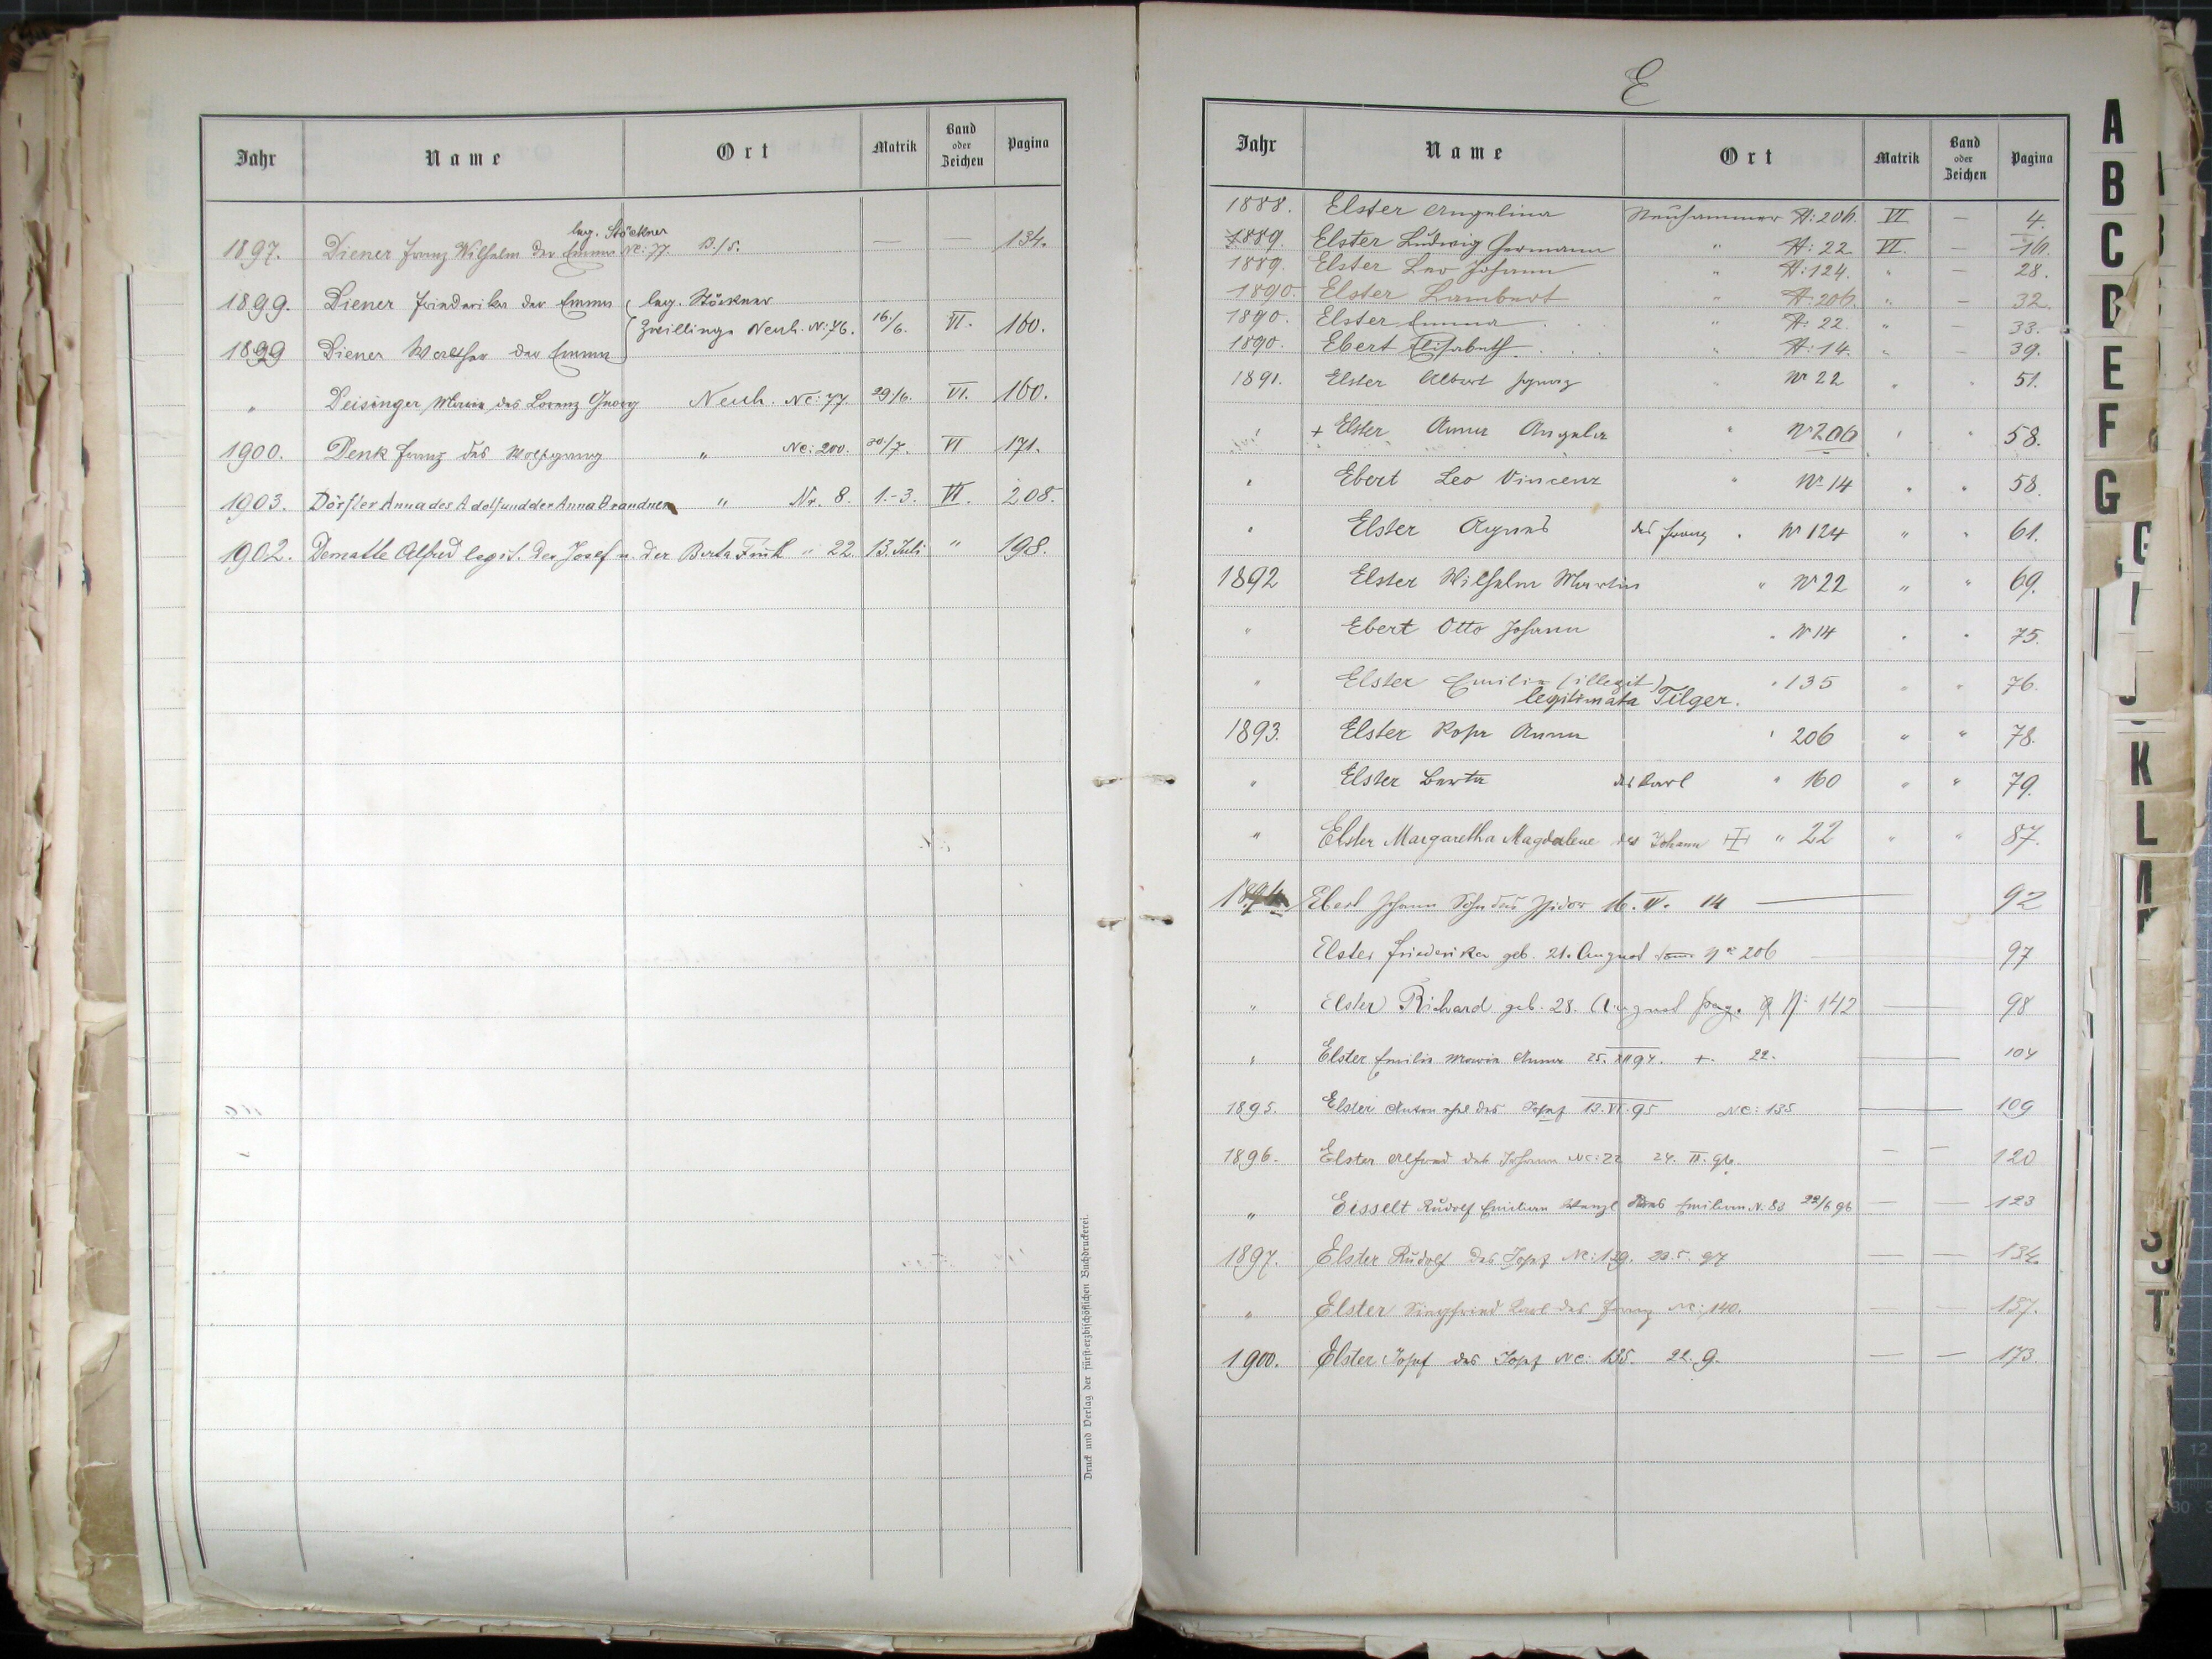 Jahr Name Ort Matrik Band oder Zeichen Pagina
leg. Stöckner
1897. Diener Franz Wilhelm der Emma Nc: 77. 13./5. — — 134.
1899. Diener Friederika der Emma leg. Stöckner
Zwillinge Neuh. N: 76. 16./6. VI. 160.
1899 Diener Walther der Emma
„ Deisinger Maria des Lorenz Georg Neuh. Nc: 77. 29./6. VI. 160.
1900. Denk Franz des Wolfgang „ Nc: 200. 30./7. VI 171.
1903. Dörfler Anna des Adolf und der Anna Brandner „ Nr. 8. 1.-3. VI. 208.
1902. Dematte Alfred legit. des Josef u. der Berta Fink „ 22. 13. Juli „ 198.
Druck und Verlag der fürst-erzbischöflichen Buchdruckerei.
E
Jahr Name Ort Matrik Band oder Zeichen Pagina
1888. Elster Angelina Neuhammer N: 206. VI — 4.
1889. Elster Ludwig Hermann „ N: 22 VI. — 16.
1889. Elster Leo Johann „ N: 124. „ — 28.
1890. Elster Lambert „ N. 206 „ — 32.
1890. Elster Emma „ N: 22. „ — 33.
1890. Ebert Elisabeth „ N: 14. „ — 39.
1891. Elster Albert Ignaz „ No 22 „ „ 51.
„ + Elster Anna Angela „ No 206 „ „ 58.
„ Ebert Leo Vincenz „ No 14 „ „ 58.
„ Elster Agnes des Franz „ No 124 „ „ 61.
1892 Elster Wilhelm Martin „ No 22 „ „ 69.
„ Ebert Otto Johann „ No 14 „ „ 75.
„ Elster Emilia (illegit) „ 135 „ „ 76.
legitimata Tilger.
1893. Elster Rosa Anna „ 206 „ „ 78.
„ Elster Berta des Karl „ 160 „ „ 79.
„ Elster Margaretha Magdalene des Johann „ 22 „ „ 87.
1894 Ebert Johann Sohn des Isidor 16. V. 14 — 92
Elster Friederika geb. 21. August No 206 97
„ Elster Richard geb. 28. August N: 142 — 98
„ Elster Emilia Maria Anna 25. XII 94. +. 22. — 104
1895. Elster Anton des Josef 13. VI. 95 Nc: 135 — 109
1896. Elster Alfred des Johann Nc: 22 24. II. 96. — — 120
„ Eisselt Rudolf Emilian Wenzl des Emilian N. 83 22/6 96 — — 123
1897. Elster Rudolf des Josef Nc: 129. 23. 5. 97 — — 134.
„ Elster Siegfried Karl des Franz Nc: 140. — — 137.
1900. Elster Josef des Josef Nc: 135. 22. 9. — — 173.
A
B
C
D
E
F
G
G
I
J
K
L
S
T